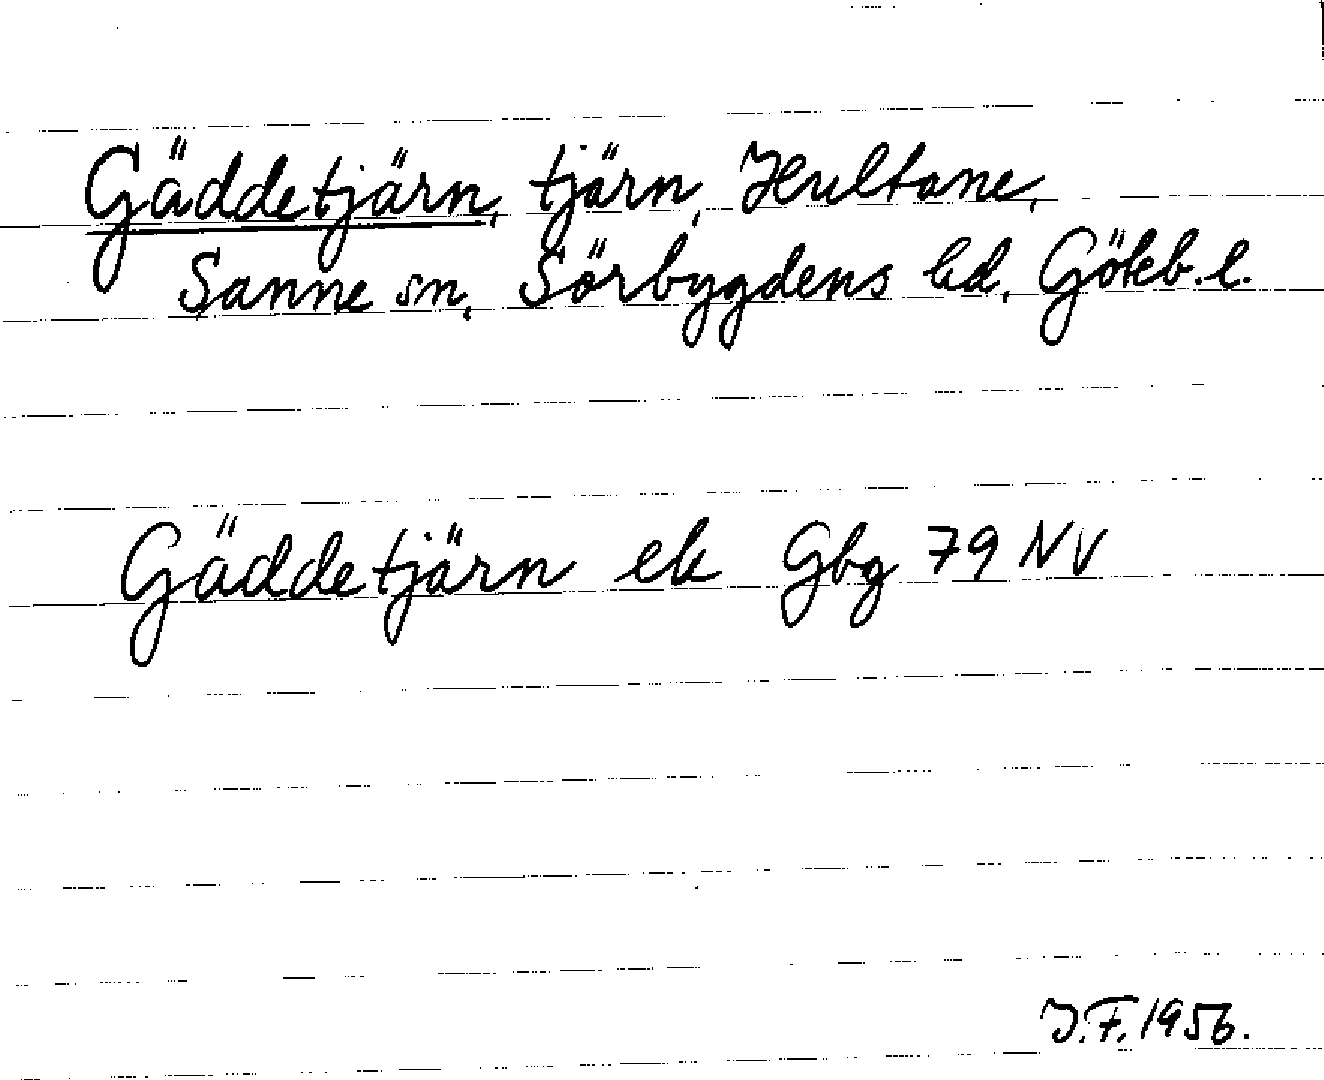 Gäddetjärn, tjärn, Hultane,
Sanne sn, Sörbygdens hd, Göteb. l.
Gäddetjärn ek Gbg 79 NV
J.F. 1956.